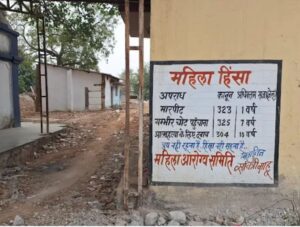 महिला हिंसा
अपराध कानून अधिकतम सजा
मारपीट 323 1 वर्ष
गम्भीर चोट पहुँचाना 325 7 वर्ष
आत्महत्या के लिए दबाव 306 10 वर्ष
चुप नहीं रहना है हिंसा नहीं सहना है
महिला आरोग्य समिति